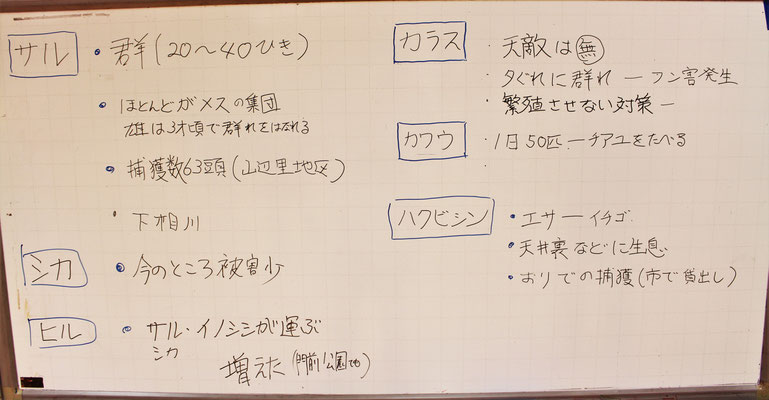 サル
・群(20〜40ひき)
・ほとんどがメスの集団
雄は3才頃で群れをはなれる
・捕獲数63頭(山辺里地区)
・下相川
シカ
・今のところ被害少
ヒル
・サル・イノシシが運ぶ
シカ
増えた(門前公園でも)
カラス
・天敵は無
・夕ぐれに群れ ― フン害発生
・繁殖させない対策 ―
カワウ
・1日50匹 ― チアユをたべる
ハクビシン
・エサ ― イチゴ
・天井裏などに生息
・おりでの捕獲(市で貸出し)